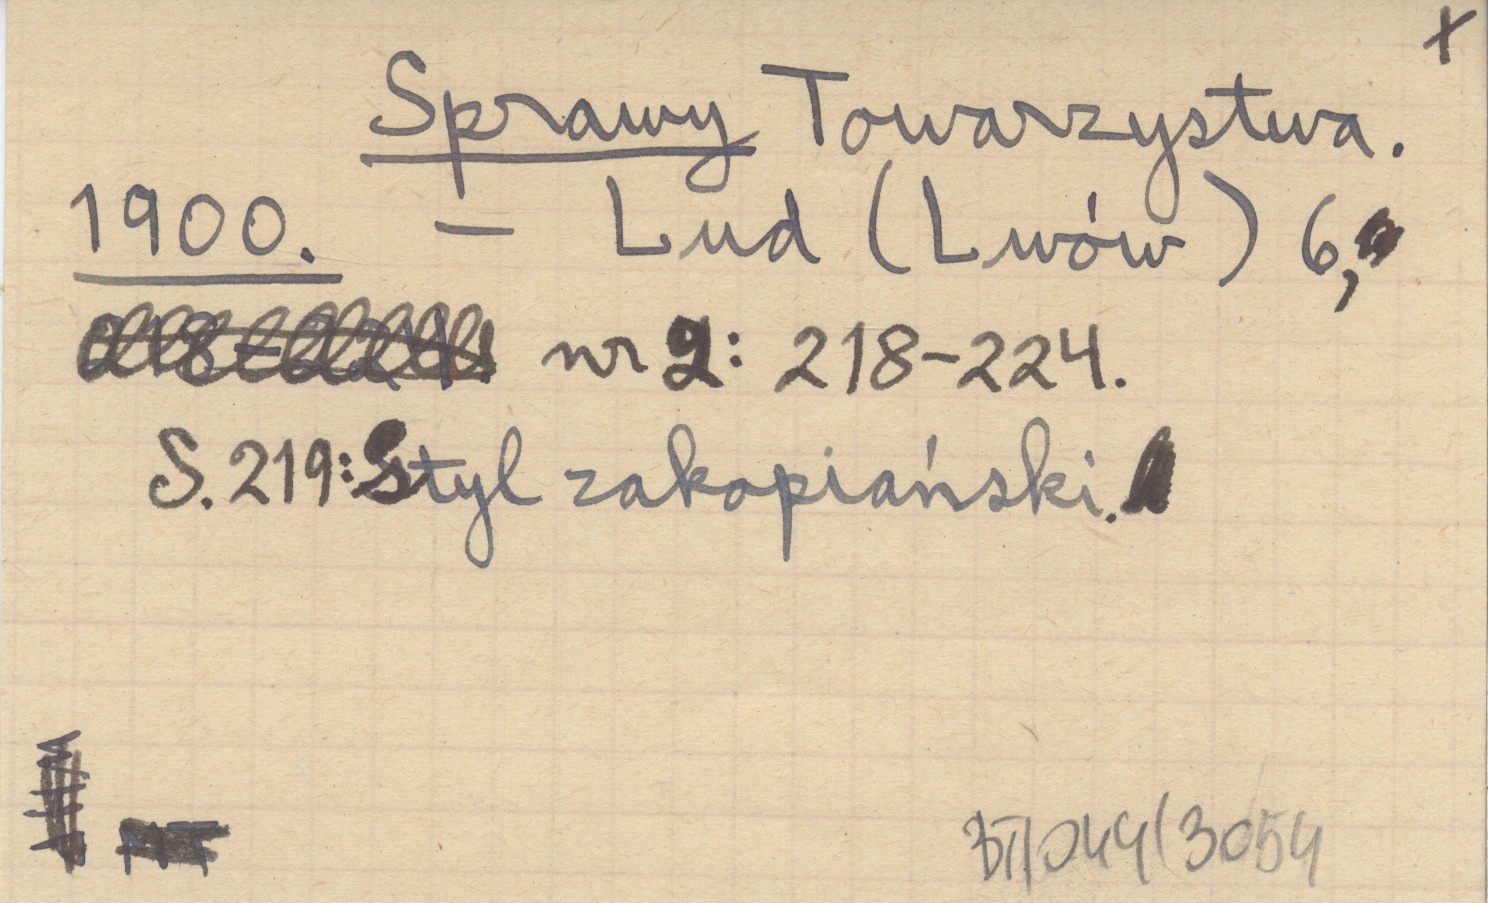 x
Sprawy Towarzystwa.
1900. – Lud (Lwów) 6,
nr 2: 218-224.
S. 219: Styl zakopiański.